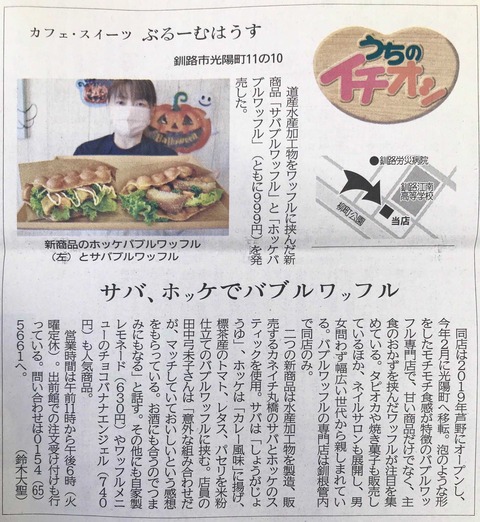 カフェ・スイーツ ぶるーむはうす
釧路市光陽町11の10
うちの
イチオシ
道産水産加工物をワッフルに挟んだ新
商品「サバブルワッフル」と「ホッケバ
ブルワッフル」(ともに999円)を発
売した。
●釧路労災病院
釧路江南
高等学校
柳町公園
当店
Halloween
新商品のホッケバブルワッフル
(左)とサバブルワッフル
サバ、ホッケでバブルワッフル
同店は2019年芦野にオープンし、
今年2月に光陽町へ移転。泡のような形
をしたモチモチ食感が特徴のバブルワッ
フル専門店で、甘い商品だけでなく、主
食のおかずを挟んだワッフルが注目を集
めている。タピオカや焼き菓子も販売し
ているほか、ネイルサロンも展開し、男
女問わず幅広い世代から親しまれてい
る。バブルワッフルの専門店は釧根管内
で同店のみ。
二つの新商品は水産加工物を製造、販
売するカネイチ丸橋のサバとホッケのス
ティックを使用。サバは「しょうがじょ
うゆ」、ホッケは「カレー風味」に揚げ、
標茶産のトマト、レタス、パセリを米粉
仕立てのバブルワッフルに挟む。店員の
田中弓未子さんは「意外な組み合わせだ
が、マッチしていておいしいという感想
をもらっている。お酒にも合うのでつま
みにもなる」と話す。その他にも自家製
レモネード(630円)やワッフルメニ
ューのチョコバナナエンジェル(740
円)も人気商品。
営業時間は午前11時から午後6時(火
曜定休)。出前館での注文受け付けも行
っている。問い合わせは0154(65)
5661へ。(鈴木大聖)